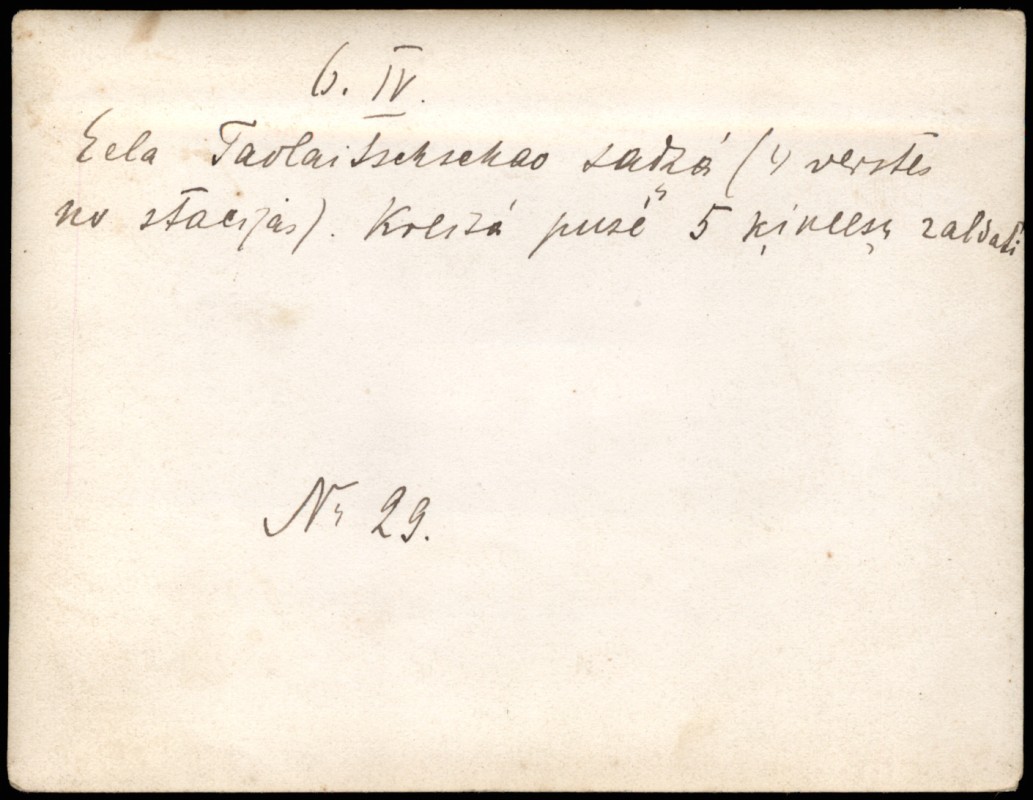 6. IV.
Eela Taolaitschschao sadzá (4 verstes
no stacijas). Kreizá pusé 5 ķineesu zaldati
Nr 29.